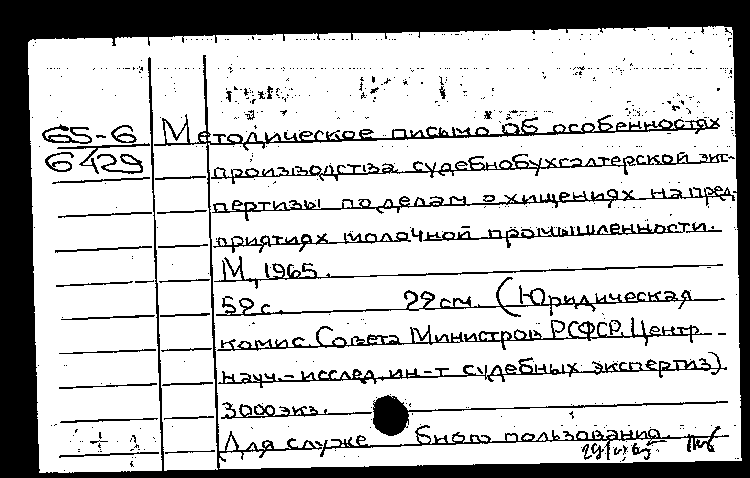 65-6 Методическое письмо об особенностях
6429 производства судебнобухгалтерской экс-
пертизы по делам о хищениях на пред-
приятиях молочной промышленности.
М., 1965.
52 с. 22 см. (Юридическая
комис. Совета Министров РСФСР. Центр.
науч.-исслед. ин-т судебных экспертиз).
3000 экз.
Для служебного пользования.